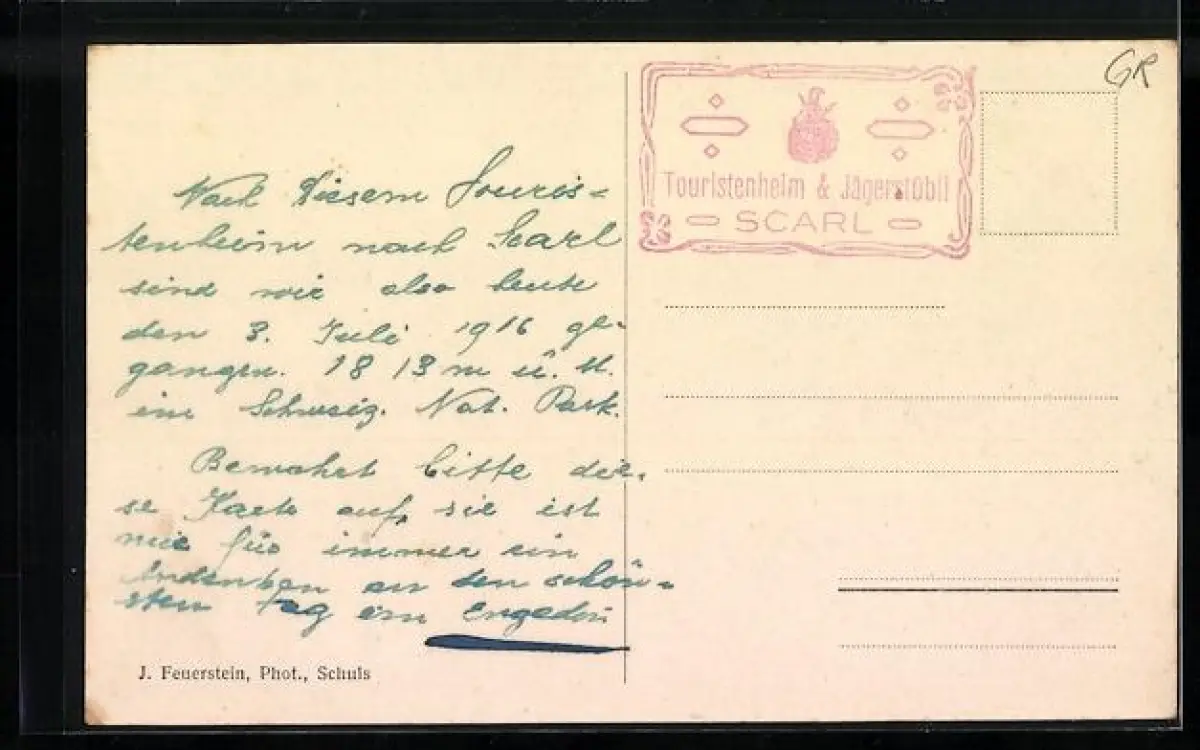 Nach diesem Touris=
tenheim nach Scarl
sind wir also heute
den 3. Juli 1916 ge-
gangen. 1813 m ü. M.
im Schweiz. Nat. Park.
Bewahrt bitte die-
se Karte auf, sie ist
mir für immer ein
Andenken an den schön=
sten Tag im Engadin
J. Feuerstein, Phot., Schuls
Touristenheim & Jägerstübli
SCARL
GR